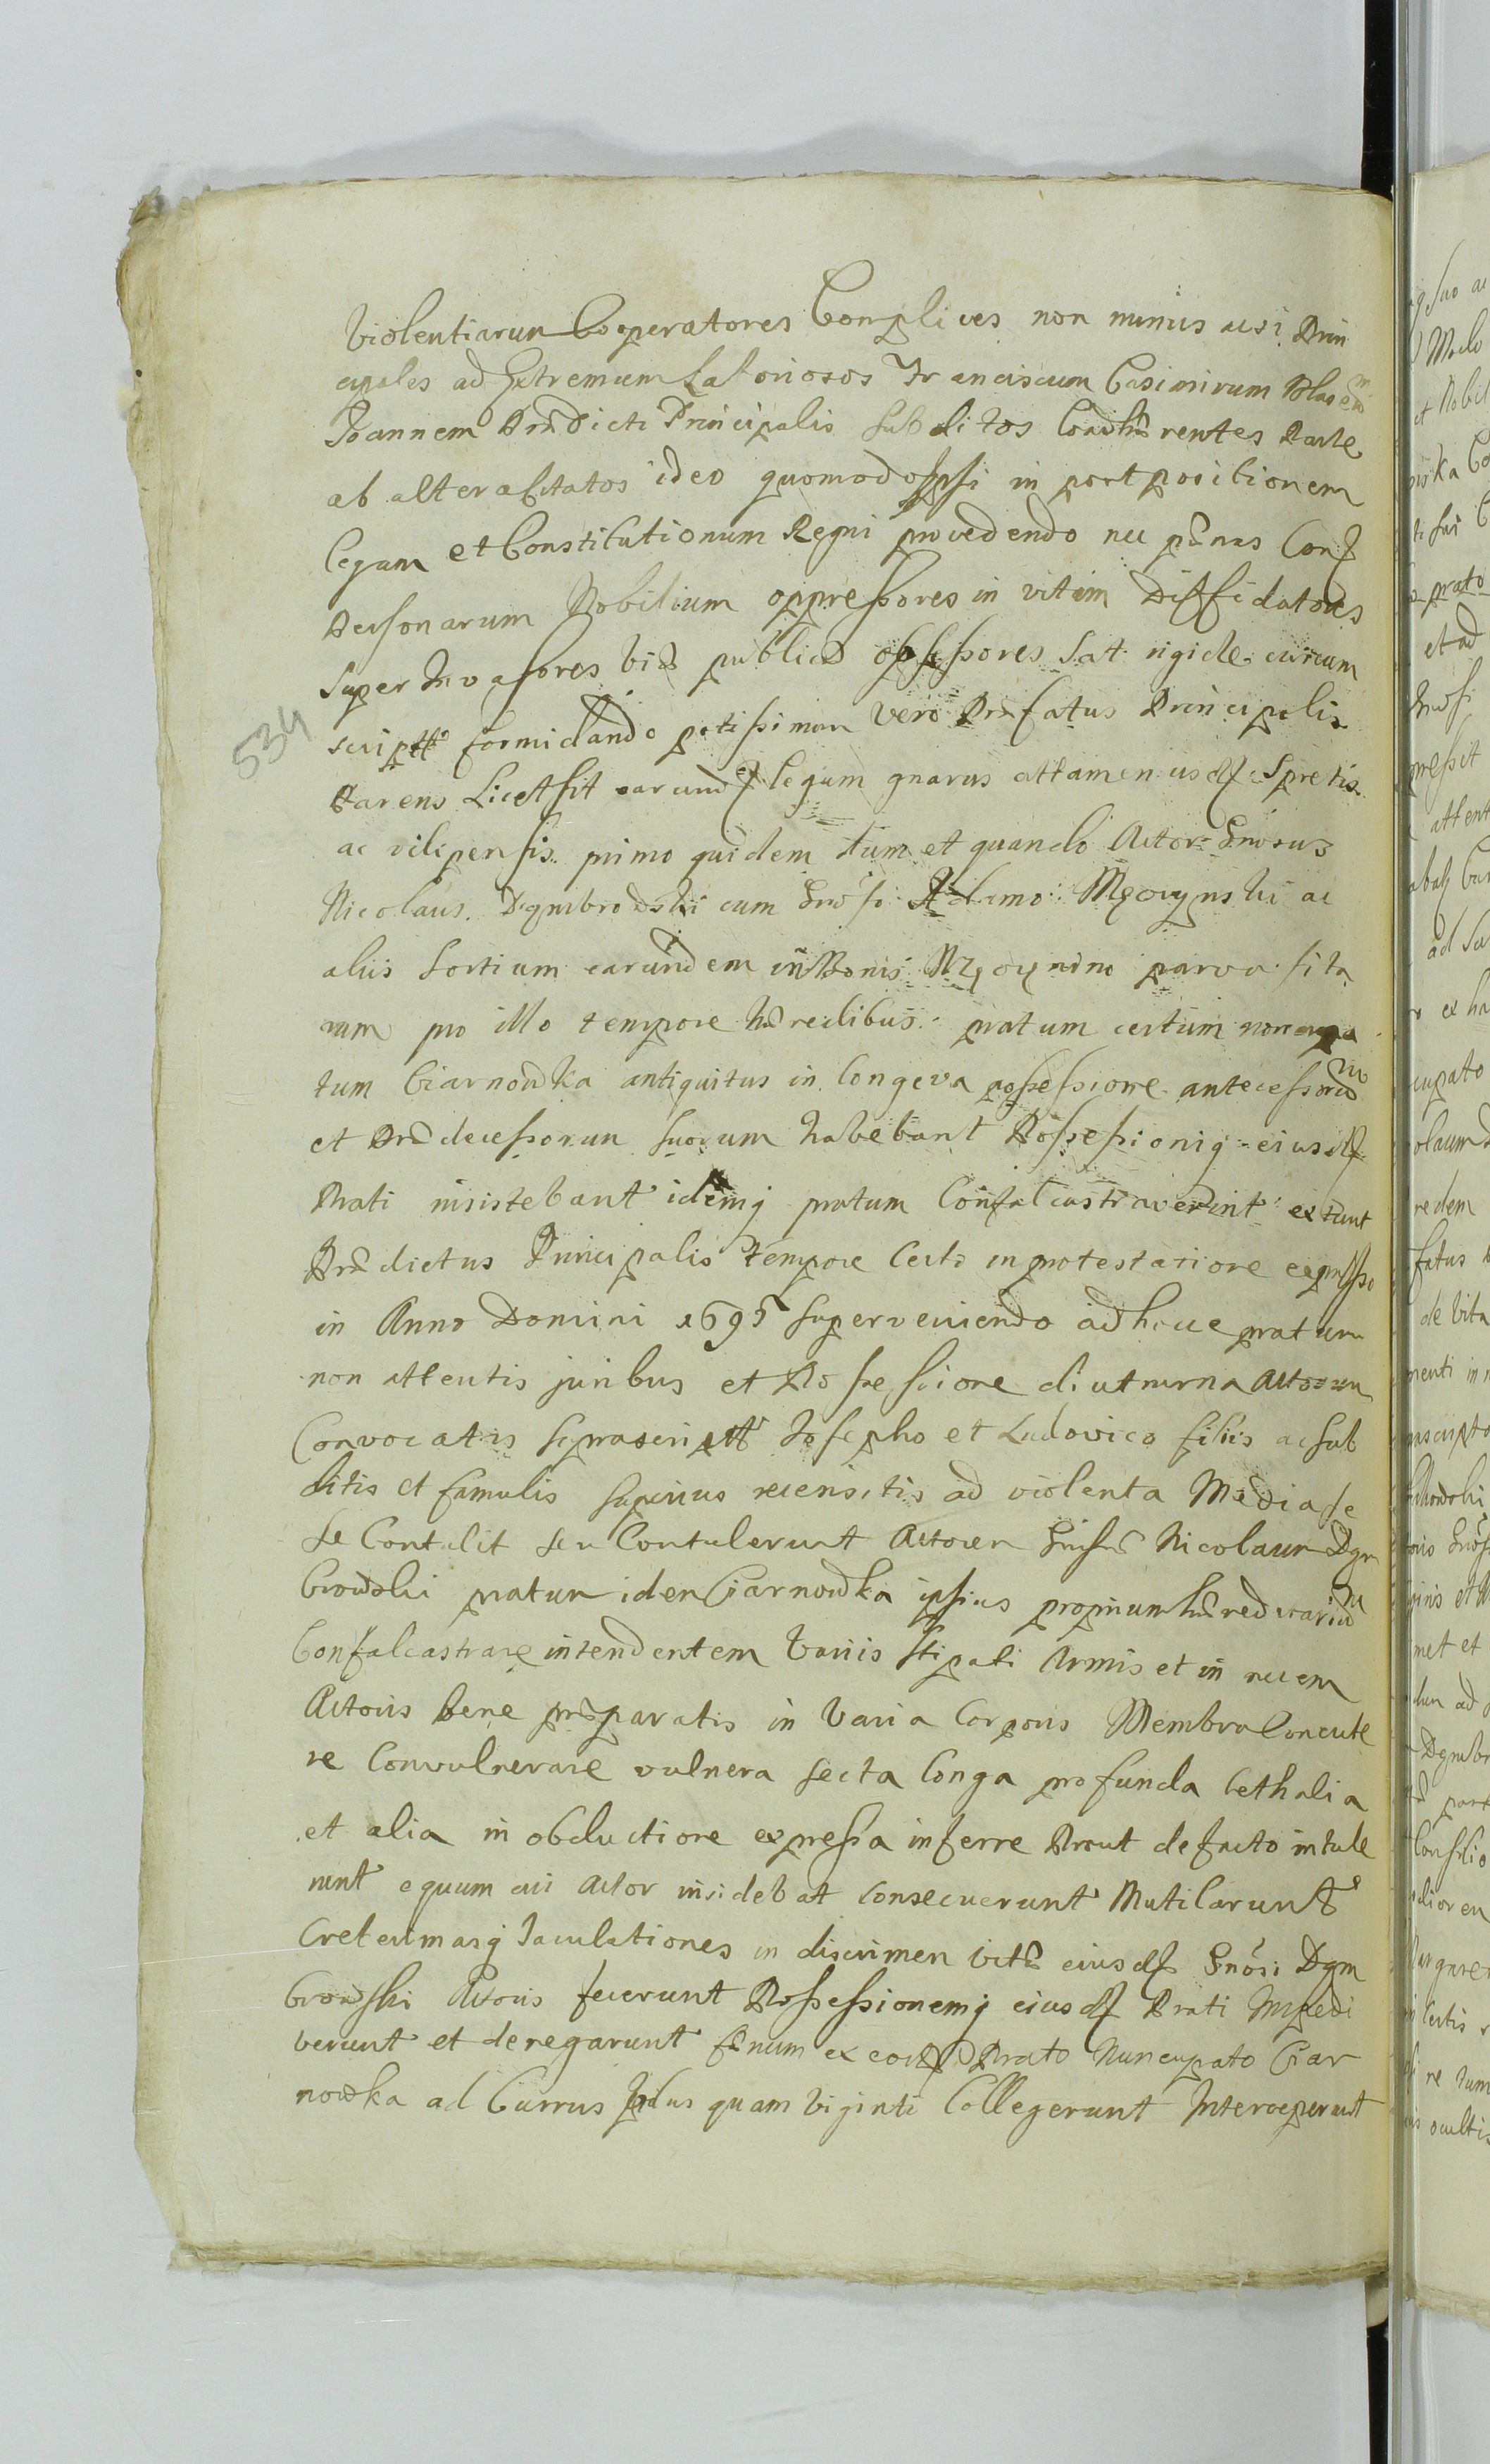 Violentiarum Cooperatores Complices non minus ac si Prin
cipales ad Extremum Laboriosos Franciscum Casimirum
Joannem Prædicti Principalis Subditos Cohærentes Parte
ab altera Citatos ideo quomodo Ipsi in postpositionem
Legum et Constitutionum Regni procedendo nec pænas
Personarum Nobilium oppressores in vitam Diffidatores
super Invasores viæ publicæ obsessores sat rigide circum
script formidando potissimum vero Præfatus Principalis
Parens Licet sit earund Legum gnarus attamen iisd Spretis
ac vilipensis primo quidem tum et quando Actor Gnosus
Nicolaus Dembrowski cum Gnoso Adamo ac
aliis Sortium earundem in Bonis parva sita
rum pro illo tempore hæredibus pratum certum noncupa
tum Ciarnowka antiquitus in Longeva possessione antecessorum
et Prædecessorum suorum habebant Possessioniq eiusd
Prati insistebant idemq pratum Confalcastraverint extunt
Prædictus Principalis tempore Certo in protestatione expresso
in Anno Domini 1695 superveniendo ad hocce pratum
non attentis juribus et Possessione diuturna Actorum
Convocatis supra script Josepho et Ludovico filiis ac sub
ditis et famulis superius recensitis ad violenta Media se
se Contulit seu Contulerunt Actorem Gnosum Nicolaum Dgm
browski pratum idem Ciarnowka ipsius proprium hæreditarium
Confalcastrare intendentem Variis stipati Armis et in necem
Actoris bene præparatis in Varia Corporis Membra Concute
re Convulnerare vulnera secta Longa profunda Lethalia
et alia in obductione expressa inferre Prout de facto intule
runt equum cui Actor insidebat consecuerunt Mutilarunt
Creterrimasq Jaculationes in discrimen vitæ eiusd Gnosi Dgm
browski Actoris fecerunt Possessionemq eiusd Prati Impedi
verunt et denegarunt fænum ex eod Prato Nuncupato Ciar
nowka ad Currus plus quam Viginti Collegerunt Interceperunt
534